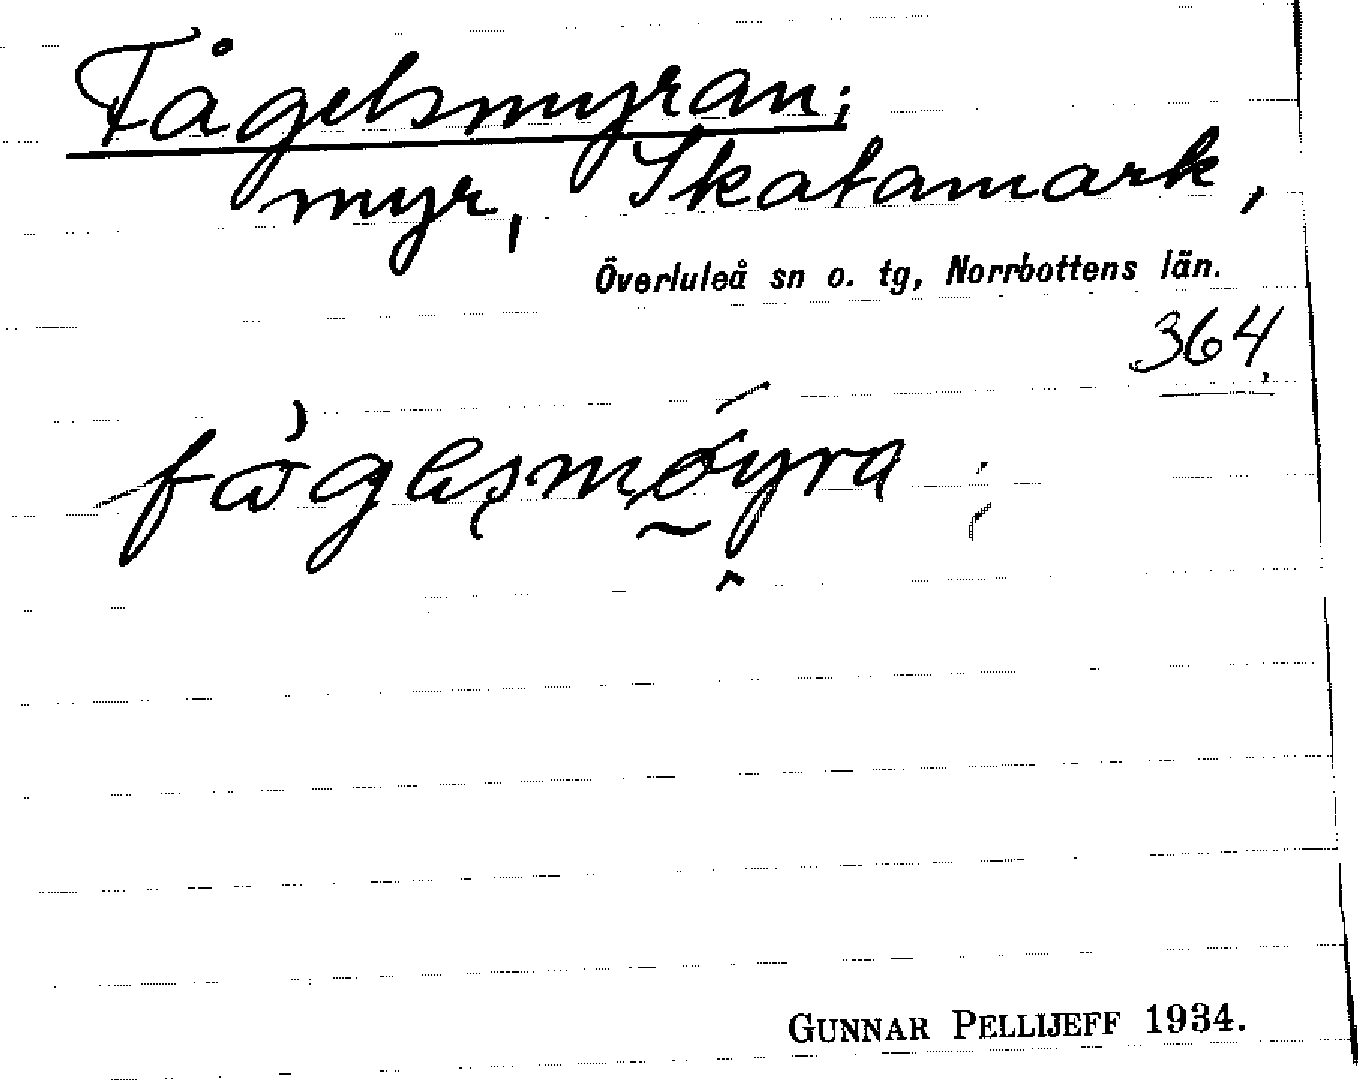 Fågelsmyran;
myr, Skatamark,
Överluleå sn o. tg, Norrbottens län.
364.
fàgəlsmøyra ;
GUNNAR PELLIJEFF 1934.